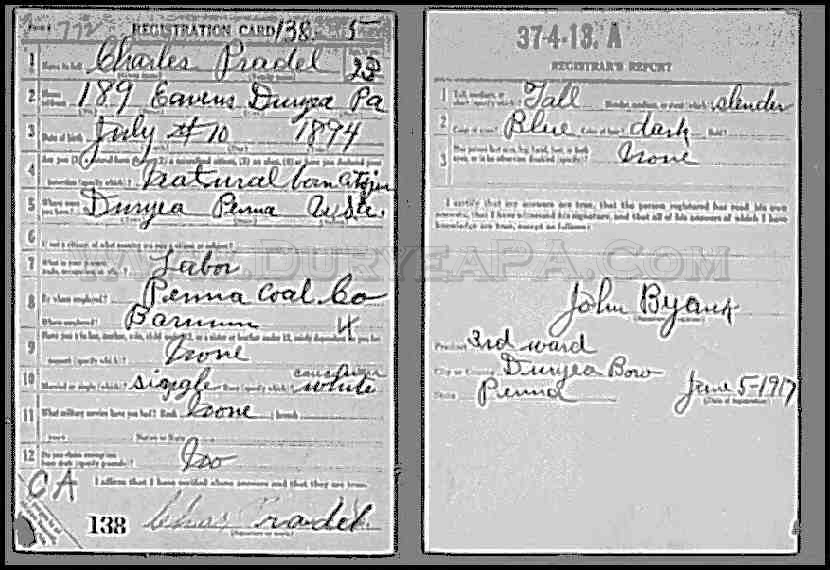 772 REGISTRATION CARD 138 5
1 Name in full Charles Pradel 23
2 Home address 189 Eavens Duryea Pa
3 Date of birth July 10 1894
4 Are you (1) a natural born citizen, (2) a naturalized citizen, (3) an alien, (4) or have you declared your
intention (specify which)? natural born citizen
5 Where were you born? Duryea Penna
6 If not a citizen, of what country are you a citizen or subject?
7 What is your present trade, occupation, or office? Labor
8 By whom employed? Penna Coal Co
Where employed? Barnum 4
9 Have you a father, mother, wife, child under 12, or a sister or brother under 12, solely dependent on you for
support (specify which)? None
10 Married or single (which)? single Race (specify which)? Caucasian white
11 What military service have you had? Rank None branch
years Nation or State
12 Do you claim exemption from draft (specify grounds)? No
I affirm that I have verified above answers and that they are true.
CA
138 Chas Pradel
(Signature or mark)
37-4-13. A
REGISTRAR'S REPORT
1 Tall, medium, or short (specify which)? Tall Slender, medium, or stout (which)? slender
2 Color of eyes? Blue Color of hair? dark Bald?
3 Has person lost arm, leg, hand, foot, or both
eyes, or is he otherwise disabled (specify)? None
I certify that my answers are true, that the person registered has read his own
answers, that I have witnessed his signature, and that all of his answers of which I have
knowledge are true, except as follows:
WWW.DURYEAPA.COM
John
(Signature of registrar)
Precinct 3rd ward
City or County Duryea Boro
State Penna June 5-1917
(Date of registration)